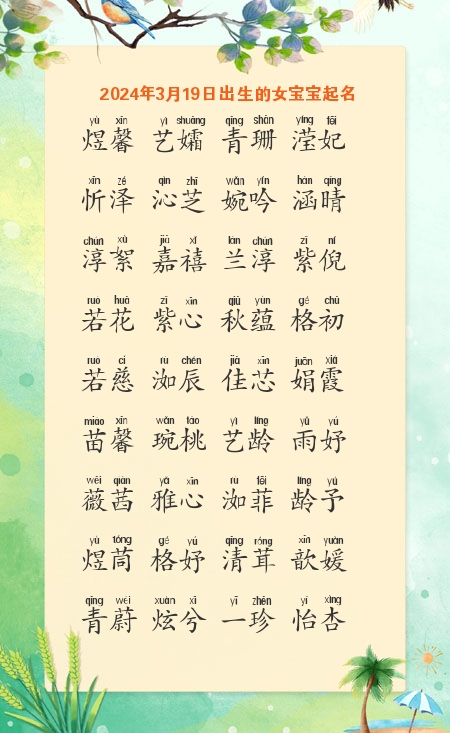 2024年3月19日出生的女宝宝起名
yù xīn yì shuāng qīng shān yíng fēi
煜馨 艺孀 青珊 滢妃
xīn zé qìn zhī wǎn yín hán qíng
忻泽 沁芝 婉吟 涵晴
chún xù jiā xǐ lán chún zǐ ní
淳絮 嘉禧 兰淳 紫倪
ruò huā zǐ xīn qiū yùn gé chū
若花 紫心 秋蕴 格初
ruò cí rù chén jiā xīn juān xiá
若慈 洳辰 佳芯 娟霞
miáo xīn wǎn táo yì líng yǔ yú
苗馨 琬桃 艺龄 雨妤
wēi qiàn yǎ xīn rù fēi líng yǔ
薇茜 雅心 洳菲 龄予
yù tóng gé yú qīng róng xīn yuàn
煜茼 格妤 清茸 歆媛
qīng wèi xuàn xī yī zhēn yí xìng
青蔚 炫兮 一珍 怡杏